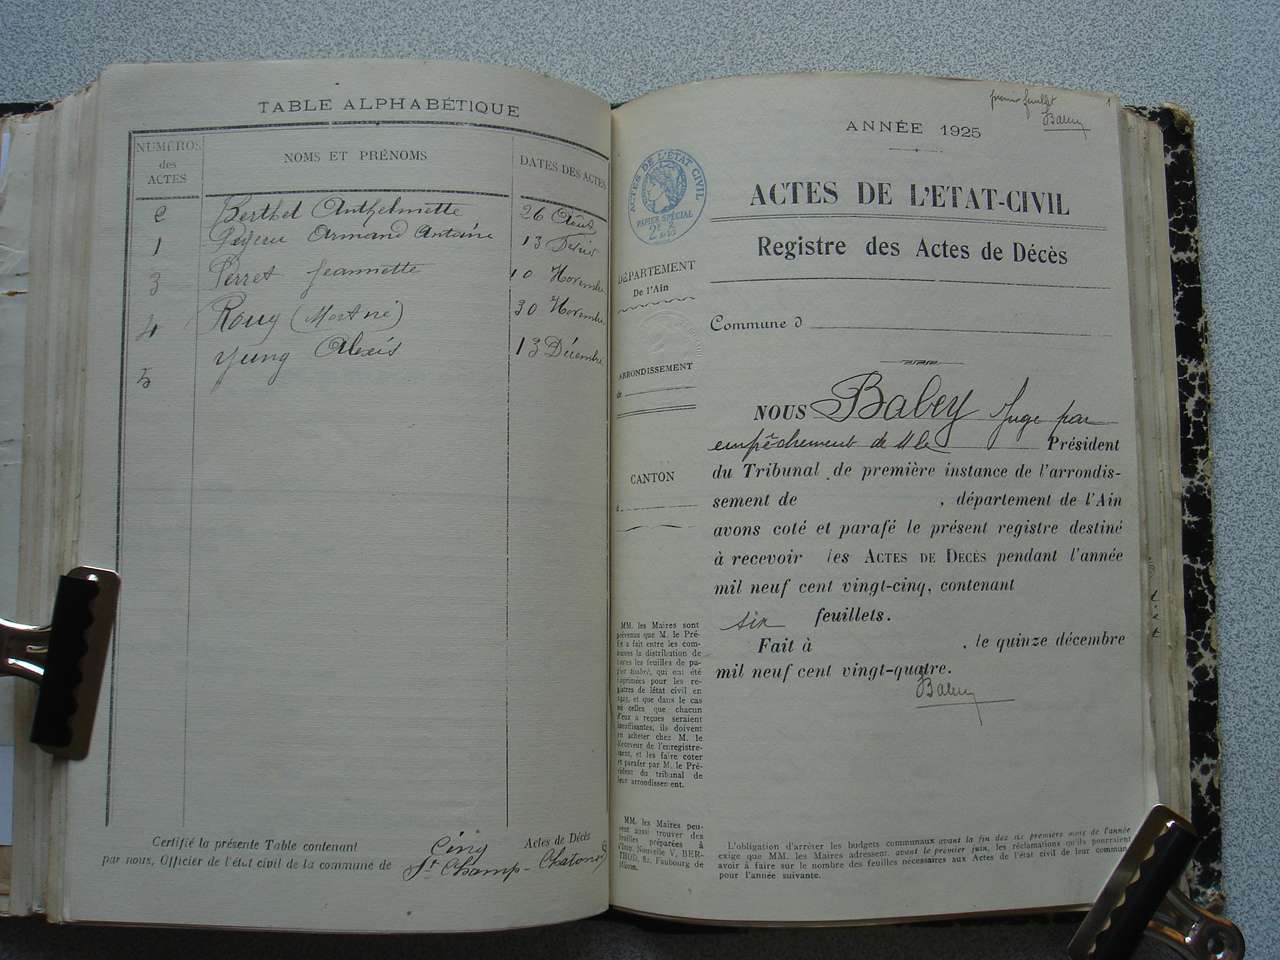 TABLE ALPHABÉTIQUE
NUMÉROS des ACTES
NOMS ET PRÉNOMS
DATES DES ACTES
2 Berthet Anthelmette 26 Août
1 Armand Antoine 13
3 Perret Jeannette 10 Novembre
4 Rouy 30 Novembre
5 Yung Alexis 13 Décembre
Certifié la présente Table contenant Cinq Actes de Décès
par nous, Officier de l'état civil de la commune de St Champ-
premier feuillet 1
Babey
ANNÉE 1925
ACTES DE L'ÉTAT CIVIL
PAPIER SPÉCIAL
ACTES DE L'ETAT-CIVIL
Registre des Actes de Décès
DÉPARTEMENT
De l'Ain
Commune d
ARRONDISSEMENT
de
CANTON
NOUS Babey Juge par
empêchement de Mr le Président
du Tribunal de première instance de l'arrondis-
sement de , département de l'Ain
avons coté et parafé le présent registre destiné
à recevoir les ACTES DE DÉCÈS pendant l'année
mil neuf cent vingt-cinq, contenant
six feuillets.
Fait à , le quinze décembre
mil neuf cent vingt-quatre.
Babey
MM. les Maires sont
prévenus que M. le Pré-
fet a fait entre les com-
munes la distribution de
toutes les feuilles de pa-
pier timbré, qui ont été
imprimées pour les re-
gistres de létat civil en
et que dans le cas
où celles que chacun
d'eux a reçues seraient
insuffisantes, ils doivent
en acheter chez M. le
Receveur de l'enregistre-
ment, et les faire coter
et parafer par M. le Pré-
sident du tribunal de
leur arrondissement.
MM. les Maires peu-
vent aussi trouver des
feuilles préparées à
l'Imp. Nouvelle V. BER-
THOD, 82, Faubourg de
Mâcon.
L'obligation d'arrêter les budgets communaux avant la fin des six premiers mois de l'année
exige que MM. les Maires adressent, avant le premier juin, les réclamations qu'ils pourraient
avoir à faire sur le nombre des feuilles nécessaires aux Actes de l'état civil de leur commune
pour l'année suivante.